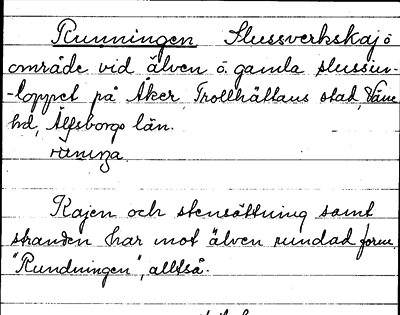 Runningen Slussverkskaj ö
område vid älven ö. gamla slussin-
-loppet på Åker, Trollhättans stad, Väne
hd, Älfsborgs län.
Kajen och stensättning samt
stranden har mot älven rundad form.
"Rundningen", alltså.